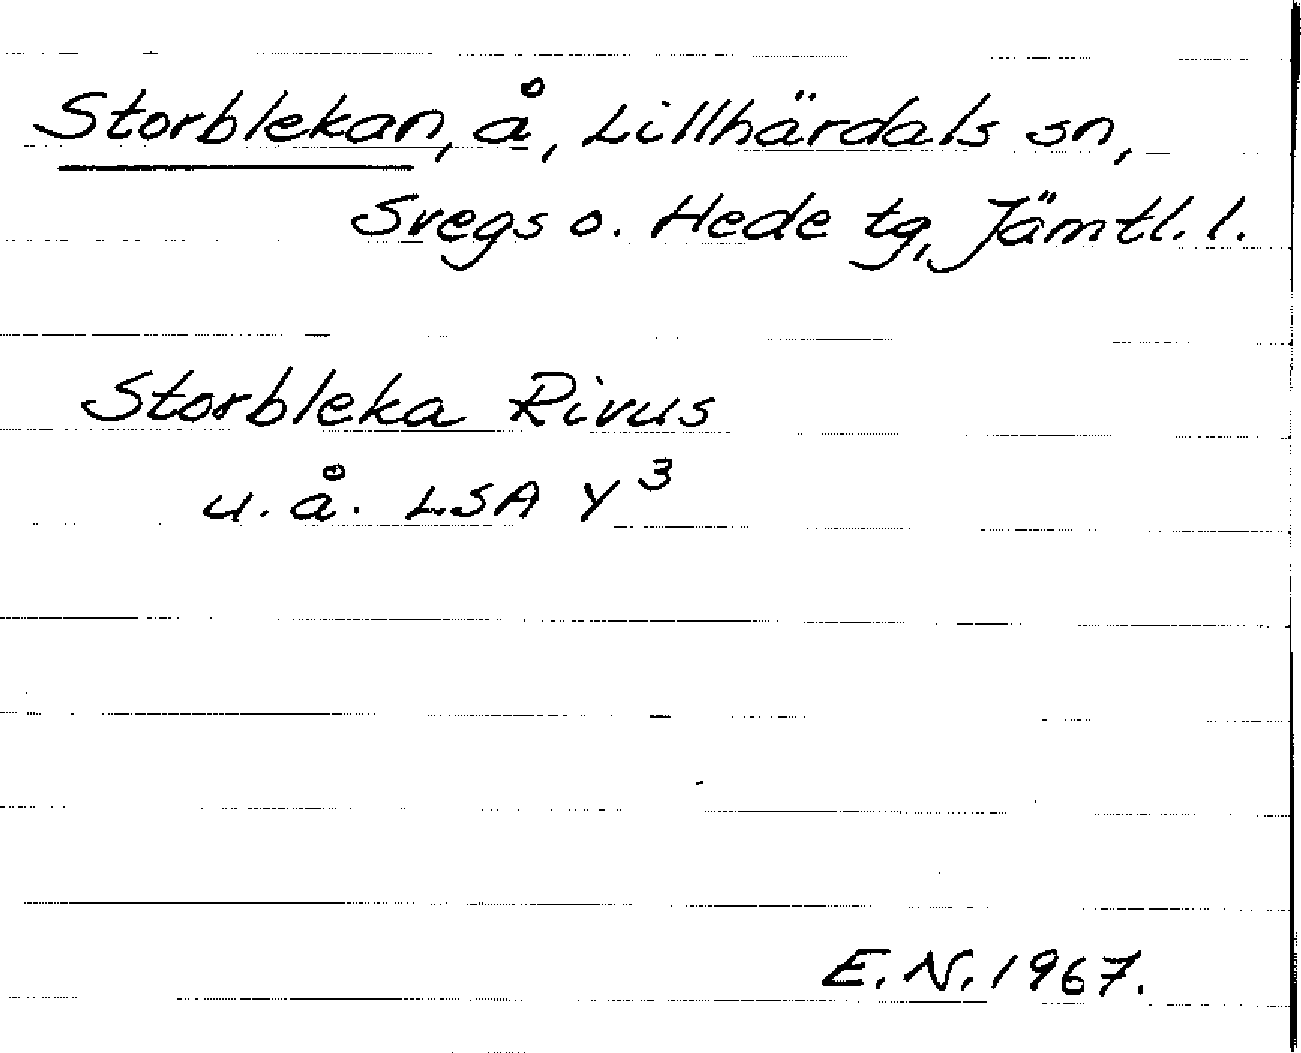 Storblekan, å, Lillhärdals sn,
Svegs o. Hede tg, Jämtl. l.
Storbleka Rivus
u. å. LSA Y³
E. N. 1967.